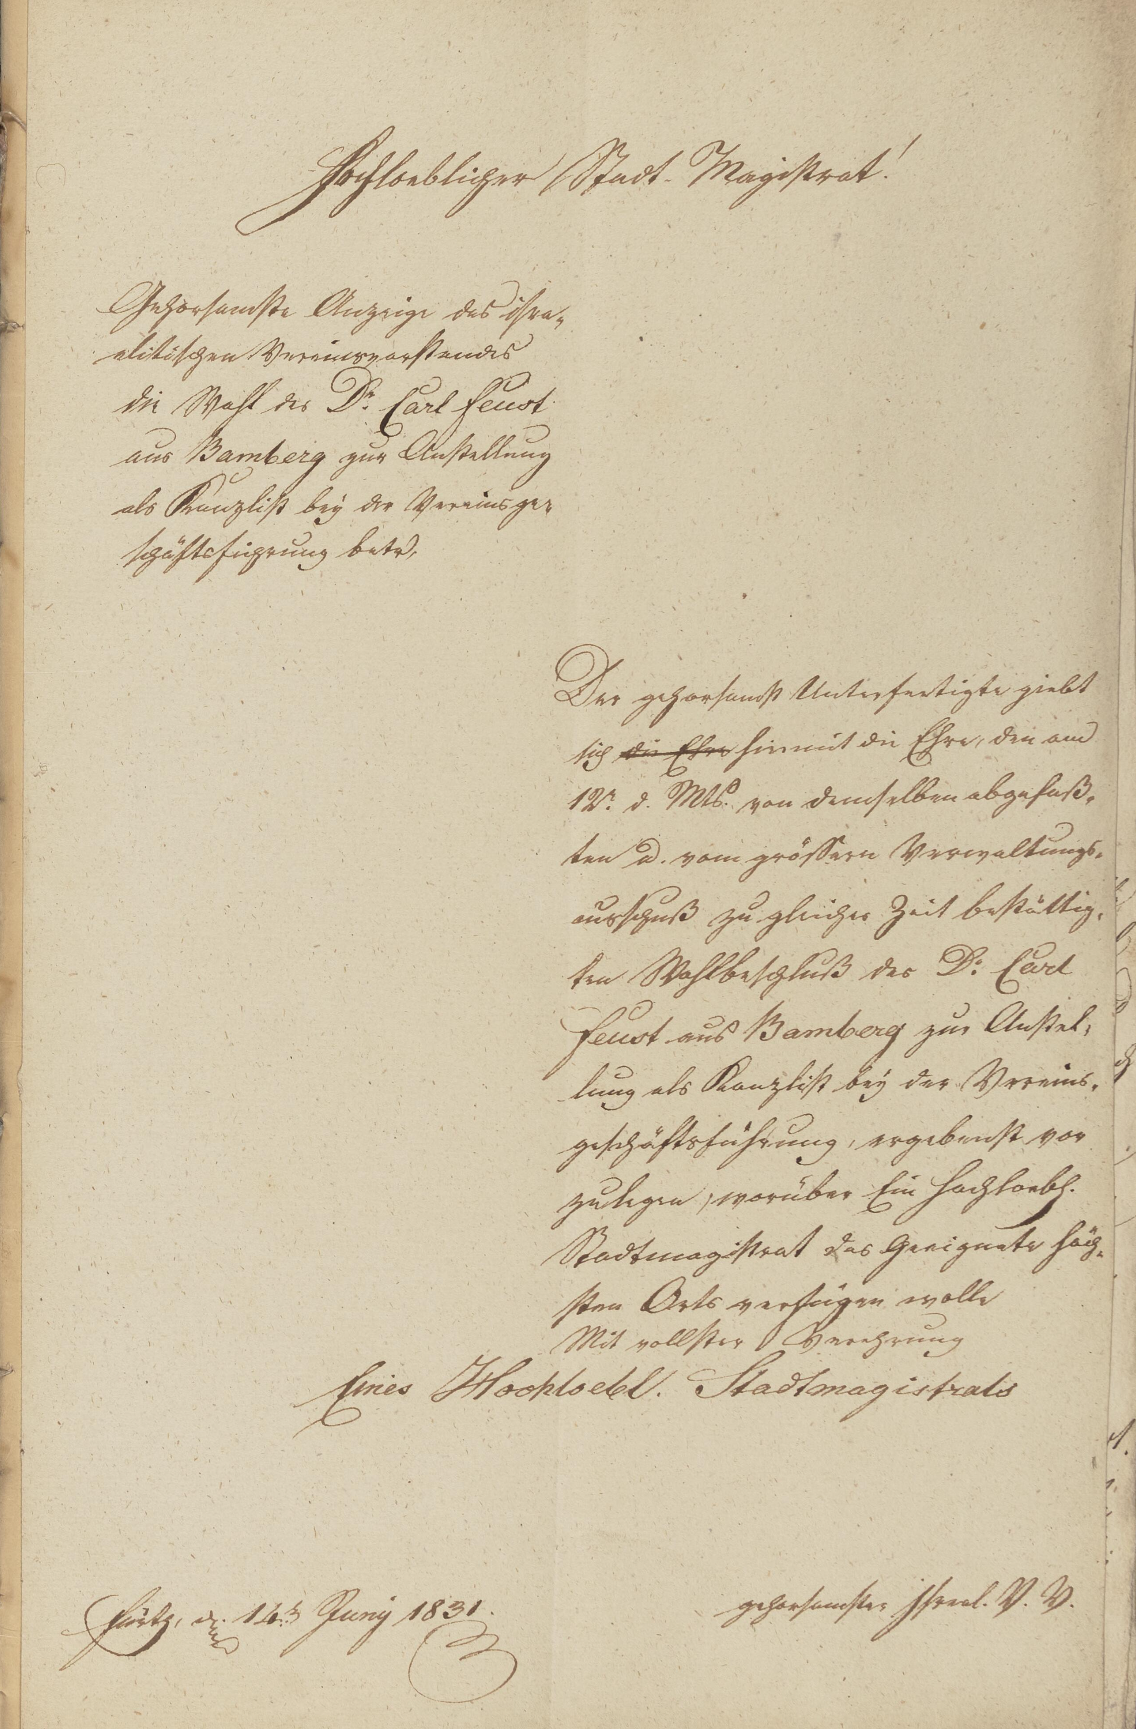 Hochloeblicher Stadt-Magistrat!
Gehorsamste Anzeige des isra-
elitischen Vereinsvorstandes
die Wahl des Dr. Carl Feust
aus Bamberg zur Anstellung
als Kanzlist bey der Vereinsge-
schäftsführung betr.
Der gehorsamst Unterfertigte giebt
sich die Ehre hiermit die Ehre, den am
12n. d. Mts. von demselben abgefaß-
ten u. vom grössern Verwaltungs-
ausschuß zu gleicher Zeit bestättig-
ten Wahlbeschluß des Dr. Carl
Feust aus Bamberg zur Anstel-
lung als Kanzlist bey der Vereins-
geschäftsführung, ergebenst vor
zulegen, worüber Ein hochloebl.
Stadtmagistrat das Geeignete höch-
sten Orts verfügen wolle
Mit vollster Verehrung
Eines Hochloebl. Stadtmagistrats
Fürth, d. Juny 1831.
gehorsamster Israel. V. V.